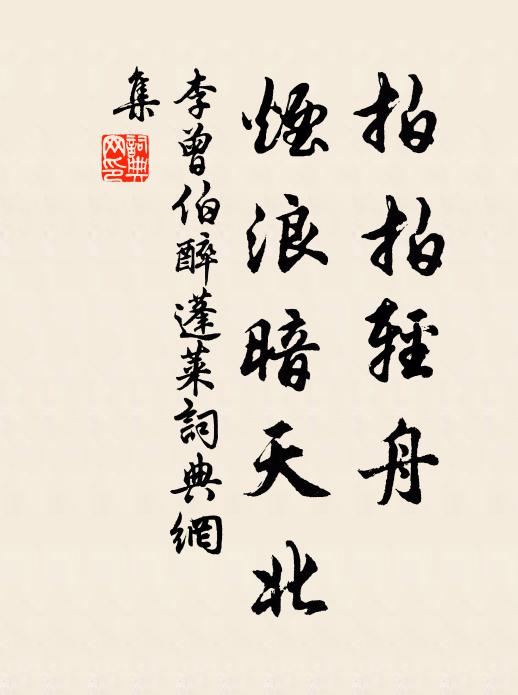 拍拍輕舟
煙浪暗天北
李曾伯醉蓬萊詞典網
集
詞典
网印